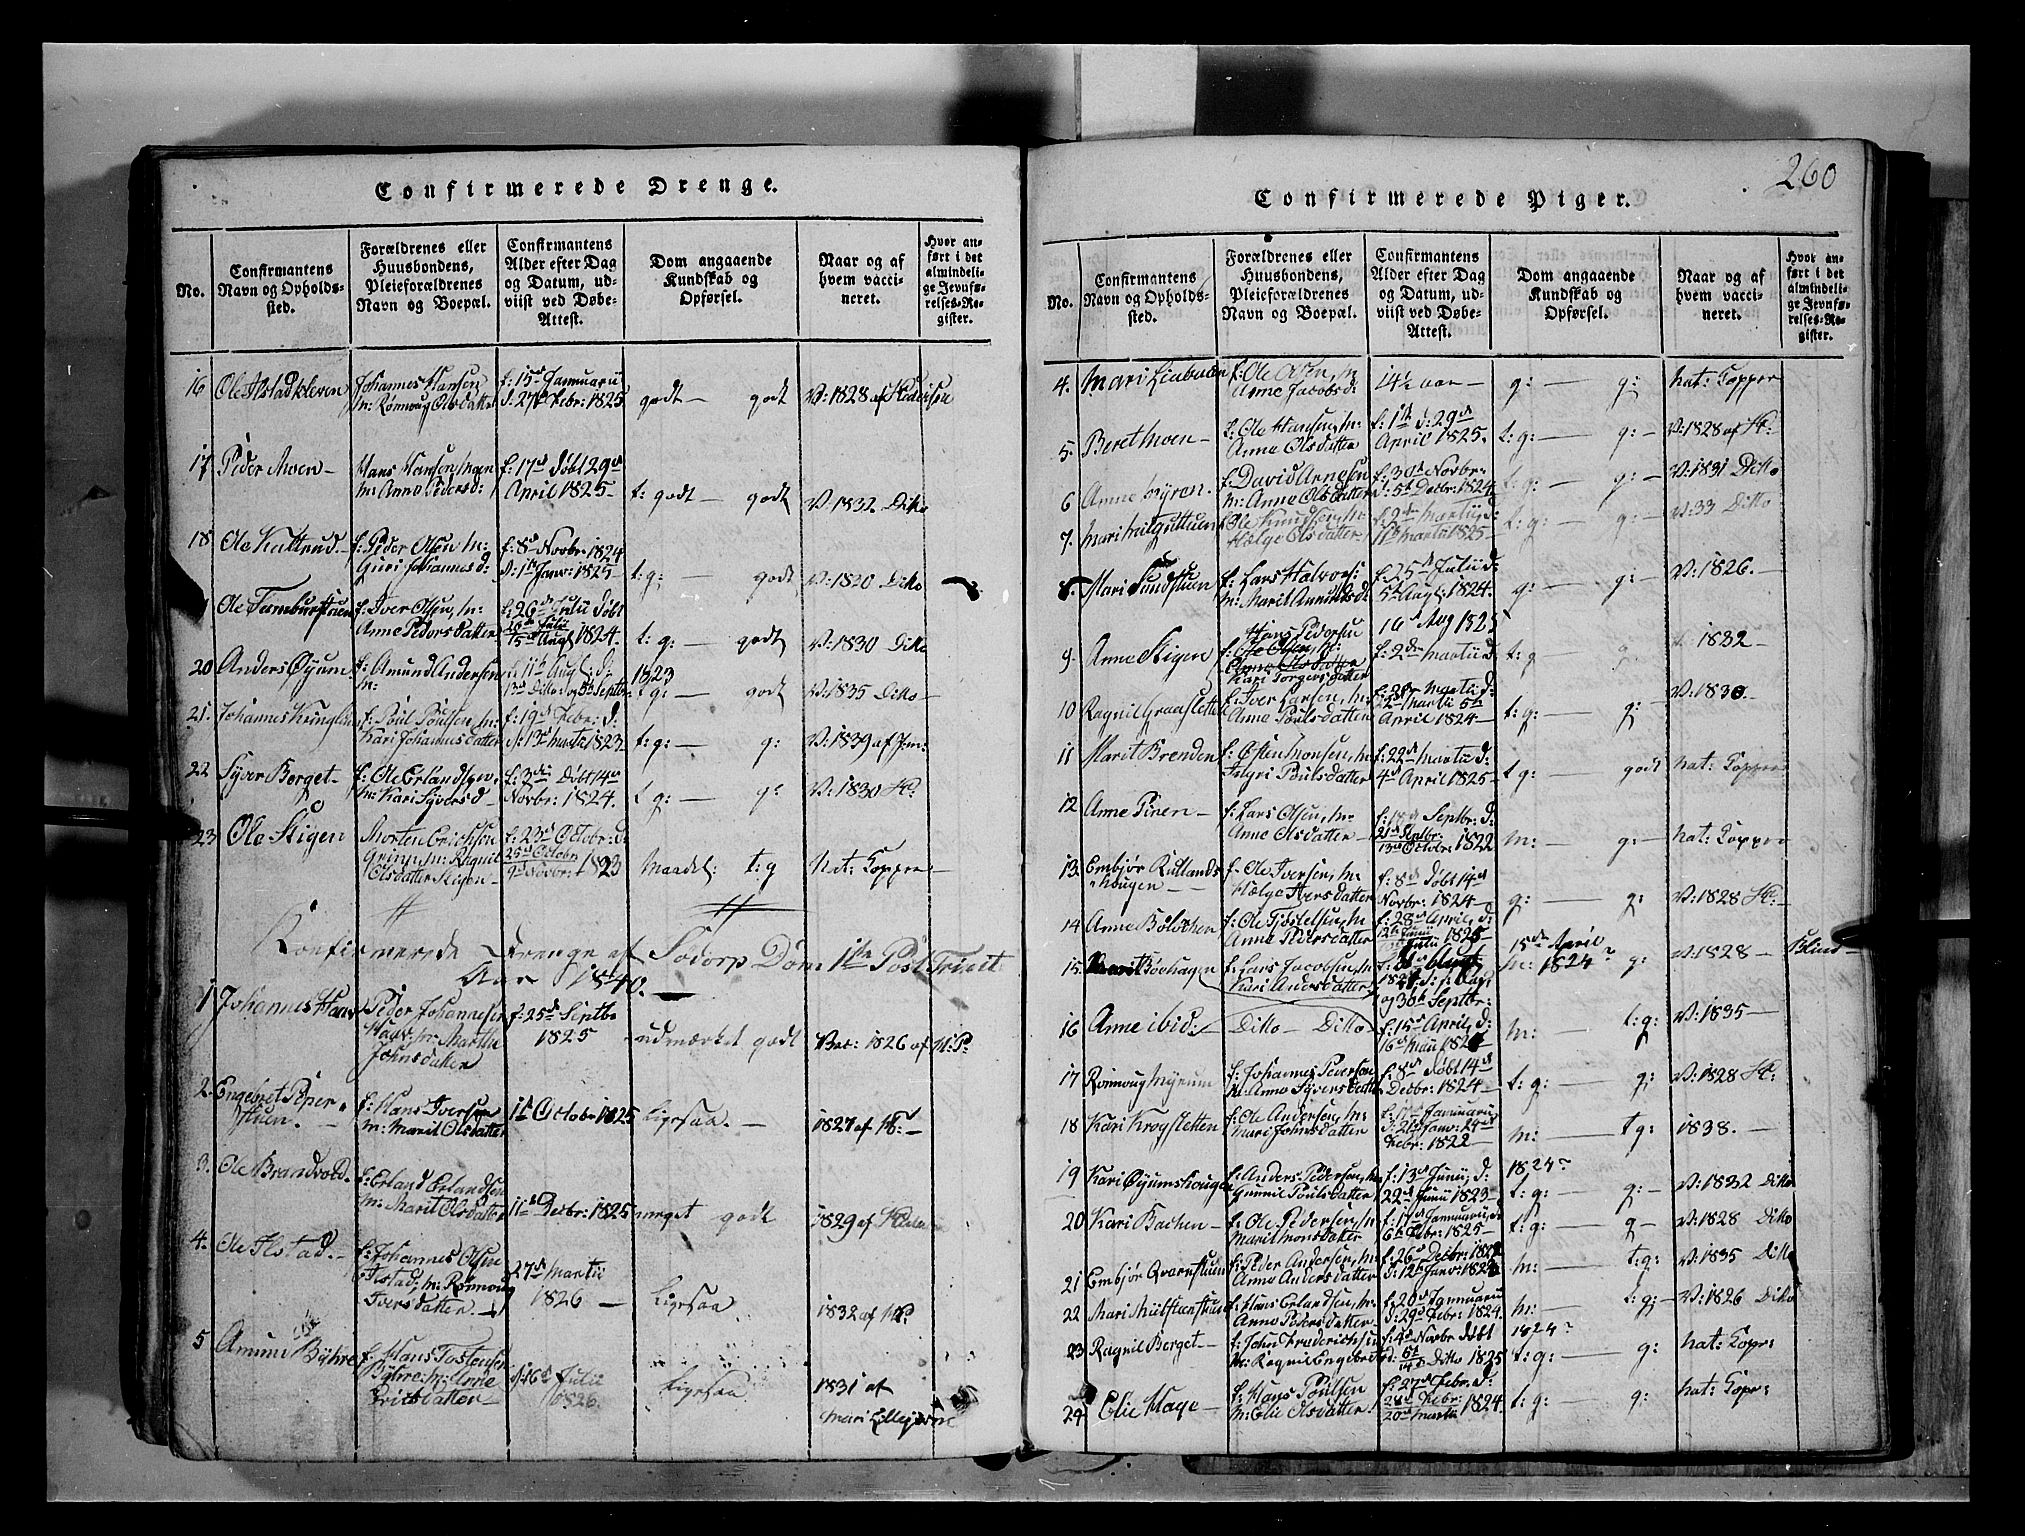 Confirmerede Drenge.
No.
Confirmantens
Navn og Opholds-
sted.
Forældrenes eller
Huusbondens,
Pleieforældrenes
Navn og Boepæl.
Confirmantens
Alder efter Dag
og Datum, ud-
viist ved Døbe-
Attest.
Dom angaaende
Kundskab og
Opførsel.
Naar og af
hvem vacci-
neret.
Hvor an-
ført i det
almindeli-
ge Jevnfø-
relses-Re-
gister.
16 Ole Ilstadkleven
Johannes Hansen
m: Rønnoug Olsdatter
f: 15d Januarii
d: 27d Febr: 1825
godt — godt
V: 1828 af Pedersen
17 Peder Moen —
Hans Hansen Moen
m: Anne Pedersd:
f: 17d døbt 29d
April 1825 —
t: godt — godt
V: 1832 Ditto
18 Ole Kultrud —
f: Peder Olsen m:
Guri Johannesd:
f: 8d Novbr: 1824
d: 1d Janv: 1825
t: g: — godt
V: 1820 Ditto
Ole Tamburstuen
f: Iver Olsen, m:
Anne Pedersdatter
f: 26d Julii døbt
15d Augl 1824.
t: g: — godt
V: 1830 Ditto
20 Anders Øyum
f: Amund Andersen
m:
f: 11d Augl: d: 1823
13d Ditto og 5d Septbr
t g: — godt
V: 1835 Ditto —
21. Johannes Kringlu
f: Poul Poulsen, m:
Kari Johannesdatter
f: 19d Febr: d:
13d Martii 1823
t: g: — g:
V: 1839 af Jm:
22 Syver Berget —
f: Ole Erlandsen,
m: Kari Syversd —
f: 3die Døbt 14d
Novbr: 1824.
t g: — g:
V: 1830 H:
23 Ole Stigen
Morten Erichsen
m: Ragnil
Olsdatter Stigen —
f: 23d Octobr: d:
25d Octobr
9d Novbr: 1823
Maadel: t: g
Nat: Copper —
Konfirmerede Drenge af Sødorp Dom: 11te Post Trinit
Aar 1840.
1 Johannes Haav
Peder Johannesen
Haav: m: Marthe
Johnsdatter
f: 25d Septbr
1825
udmærket godt
Vac: 1826 af M: P:
2. Engebret Piper-
stuen. —
f: Hans Iversen
m: Marit Olsdatter
1d Octobr 1825
Ligesaa. —
1827 af H: —
3. Ole Brandvold.
f: Erland Erlandsen
m: Marit Olsdatter
11d Decbr: 1825
meget godt
1829 af
4. Ole Ilstad. —
f: Johannes Olsen
Ilstad; m: Rønnoug
Iversdatter —
27d Martii
1826 —
Ligesaa
1832 af
5 Amund Byhre
f: Hans Tostensen
Byhre: m: Anne
Ericsdatter —
16d Julii
1826
Ligesaa
1831 af
Mari Ellegierne
260
Confirmerede Piger.
No.
Confirmantens
Navn og Opholds-
sted.
Forældrenes eller
Huusbondens,
Pleieforældrenes
Navn og Boepæl.
Confirmantens
Alder efter Dag
og Datum, ud-
viist ved Døbe-
Attest.
Dom angaaende
Kundskab og
Opførsel.
Naar og af
hvem vacci-
neret.
Hvor an-
ført i det
almindeli-
ge Jevnfø-
relses-Re-
gister.
4. Mari
f: Ole m
Anne Jacobsd:
14½ aar —
g: — g:
Nat: Copper
5. Beret Moen —
f: Ole Hansen, m:
Anne Olsdatter
f: 1d d: 29d
April 1825.
t: g: — g: —
V: 1828 af H:
6 Anne Myren.
f: David Arnesen
m: Anne Olsdatter
f: 30d Novbr:
d: 5d Decbr: 1824
t: g: — g: —
V: 1831 Ditto
7. Mari
Ole Knudsen, m
Helge Olsdatter
f: 2den Martii d:
11d Martii 1825 —
t: g: — g: —
V: 33 Ditto
8. Mari Sundstuen
f: Lars Halvors:
m: Marit Amundsd:
f: 25d Julii d:
5d Augl: 1824.
g: — g: —
V: 1826. —
9. Anne Stigen
Hans Pedersen
f: Ole Olsen, m:
Anne Olsdatter
Kari Torgersdatter
16d Aug 1825
f: 2den Martii d
t: g — g:
1832 —
10 Ragnil Graasletten
f: Iver Larsen, m:
Anne Poulsdatter
Martii d:
22d Martii 5d
April 1824 —
t: g: — g:
V: 1830 —
11 Marit Brenden
f: Østen Monsen, m
Ingri Poulsdatter
f: 22d Martii d:
4d April 1825 —
t g: — godt
Nat: Copper
12 Anne Tiren —
f: Lars Olsen, m:
Anne Olsdatter —
f: 17d Septbr: d:
21d Septbr:
13d Octobr: 1822
m: — g: —
Nat: Copper
13. Embjør Rutlands-
hougen —
f: Ole Iversen, m:
Helge Iversdatter
f: 8d Døbt 14d
Novbr: 1824 —
g: — g:
V: 1828 H: —
14 Anne Bolvhen
f: Ole m
Anne Pedersdatter
f: 28d April, d:
12d Junii
Julii 1825 —
15. Marit Bøehagen
f: Lars Jacobsen, m
Kari Andersdatter
og 30d Septbr:
15de April
m: 1824? g:
V: 1828 —
Blind —
16 Anne ibid:
Ditto — Ditto
f: 15d April, d:
16d Maii 1824
m: — t: g:
V: 1835 —
17 Rønnoug Myrum
f: Johannes Pedersen
m: Anne Syversdatter
f: 8d Døbt 14d
Decbr: 1824 —
t: g: — g:
V: 1828 H:
18 Kari Krogsletten
f: Ole Andersen, m:
Mari Johnsdatter
f: 17d Januarii
d: 21d Janv: 24d
Febr: 1822 —
m: — t g:
1838. —
19 Kari Øyumshougen
f: Anders Pedersen, m
Gunnil Poulsdatter
f: 13d Junii, d:
22d Junii 1823 —
1824?
t: g: — g: —
V: 1832 Ditto
20 Kari Bachen —
f: Ole Pedersen, m
Marit Monsdatter
f: 17d Januarii, d
6d Febr: 1825 —
t: g: — g —
V: 1828 Ditto
21 Embjør Qvernstuen
f: Peder Andersen, m:
Anne Andersdatter
f: 26d Decbr:
d: 12d Janv:
m: — t: g:
V: 1835 Ditto
22 Mari
f: Hans Erlandsen, m:
Anne Pedersdatter
f: 20d Januarii
d: 29d Febr: 1824.
m: — t: g: —
V: 1826 Ditto
23 Ragnil Berget —
f: John Frederichsen
m: Ragnil
f: 4d Novbr Døbt
14d Ditto 1825
1824?
t: g: — g:
Nat: Copr:
24 Elie Hage —
f: Hans Poulsen
m: Elie Olsdatter.
f: 27d Febr. d:
28d Febr:
20d Martii 1824.
t: g: — g:
Nat: Copr: